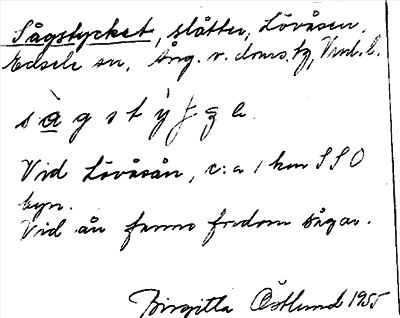 Sågstycket, slåtter, Lövåsen,
Edsele sn, Ång. v. doms. tg, Vnrl. l.
Vid Lövåsån, c:a 1 km SSO
byn.
Vid ån fanns fordom sågar.
Birgitta Östlund 1955